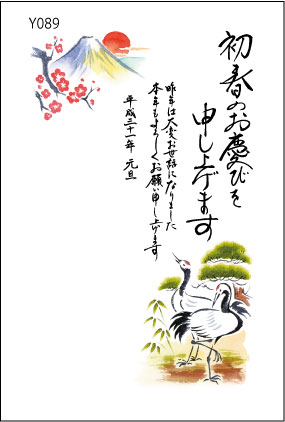 Y089
初春のお慶びを
申し上げます
昨年は大変お世話になりました
本年もよろしくお願い申し上げます
平成三十一年 元旦